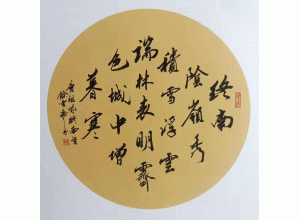 終南
陰嶺秀
積雪浮雲
端林表明霽
色城中增
暮寒